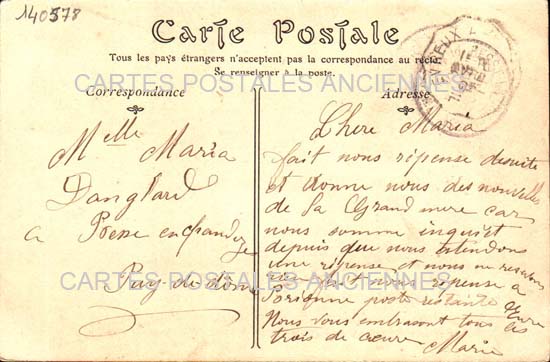 140578
Carte Postale
Tous les pays étrangers n'acceptent pas la correspondance au recto
Se renseigner à la poste.
CARTES POSTALES ANCIENNES
Correspondance
Adresse
EVREUX A
Melle Maria
Danglard
a
Puy-de-dome
Chere Maria
fait nous répense desuite
et donne nous des nouvelles
de la Grand mere car
nous somme inquiet
depuis que nous attendon
une répense et nous ne
fait nous répense a
poste restante Eure
CARTES POSTALES ANCIENNES
Nous vous embrasons tous les
trois de coeur Marie